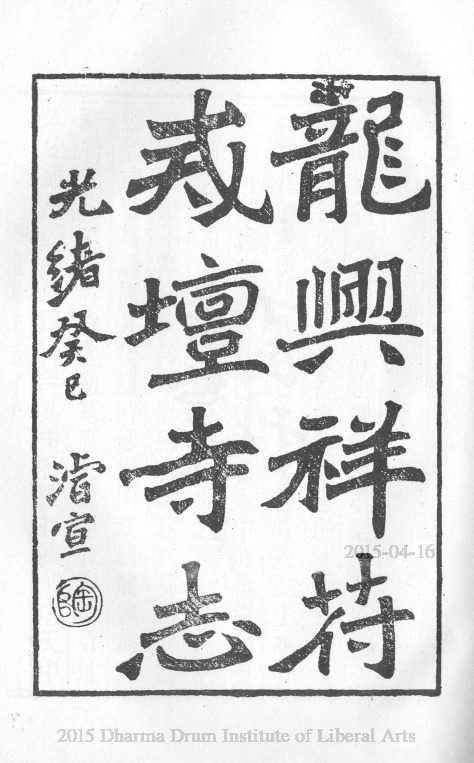 龍興祥符
戒壇寺志
光緒癸巳 濬宣
陶
2015-04-16
2015 Dharma Drum Institute of Liberal Arts